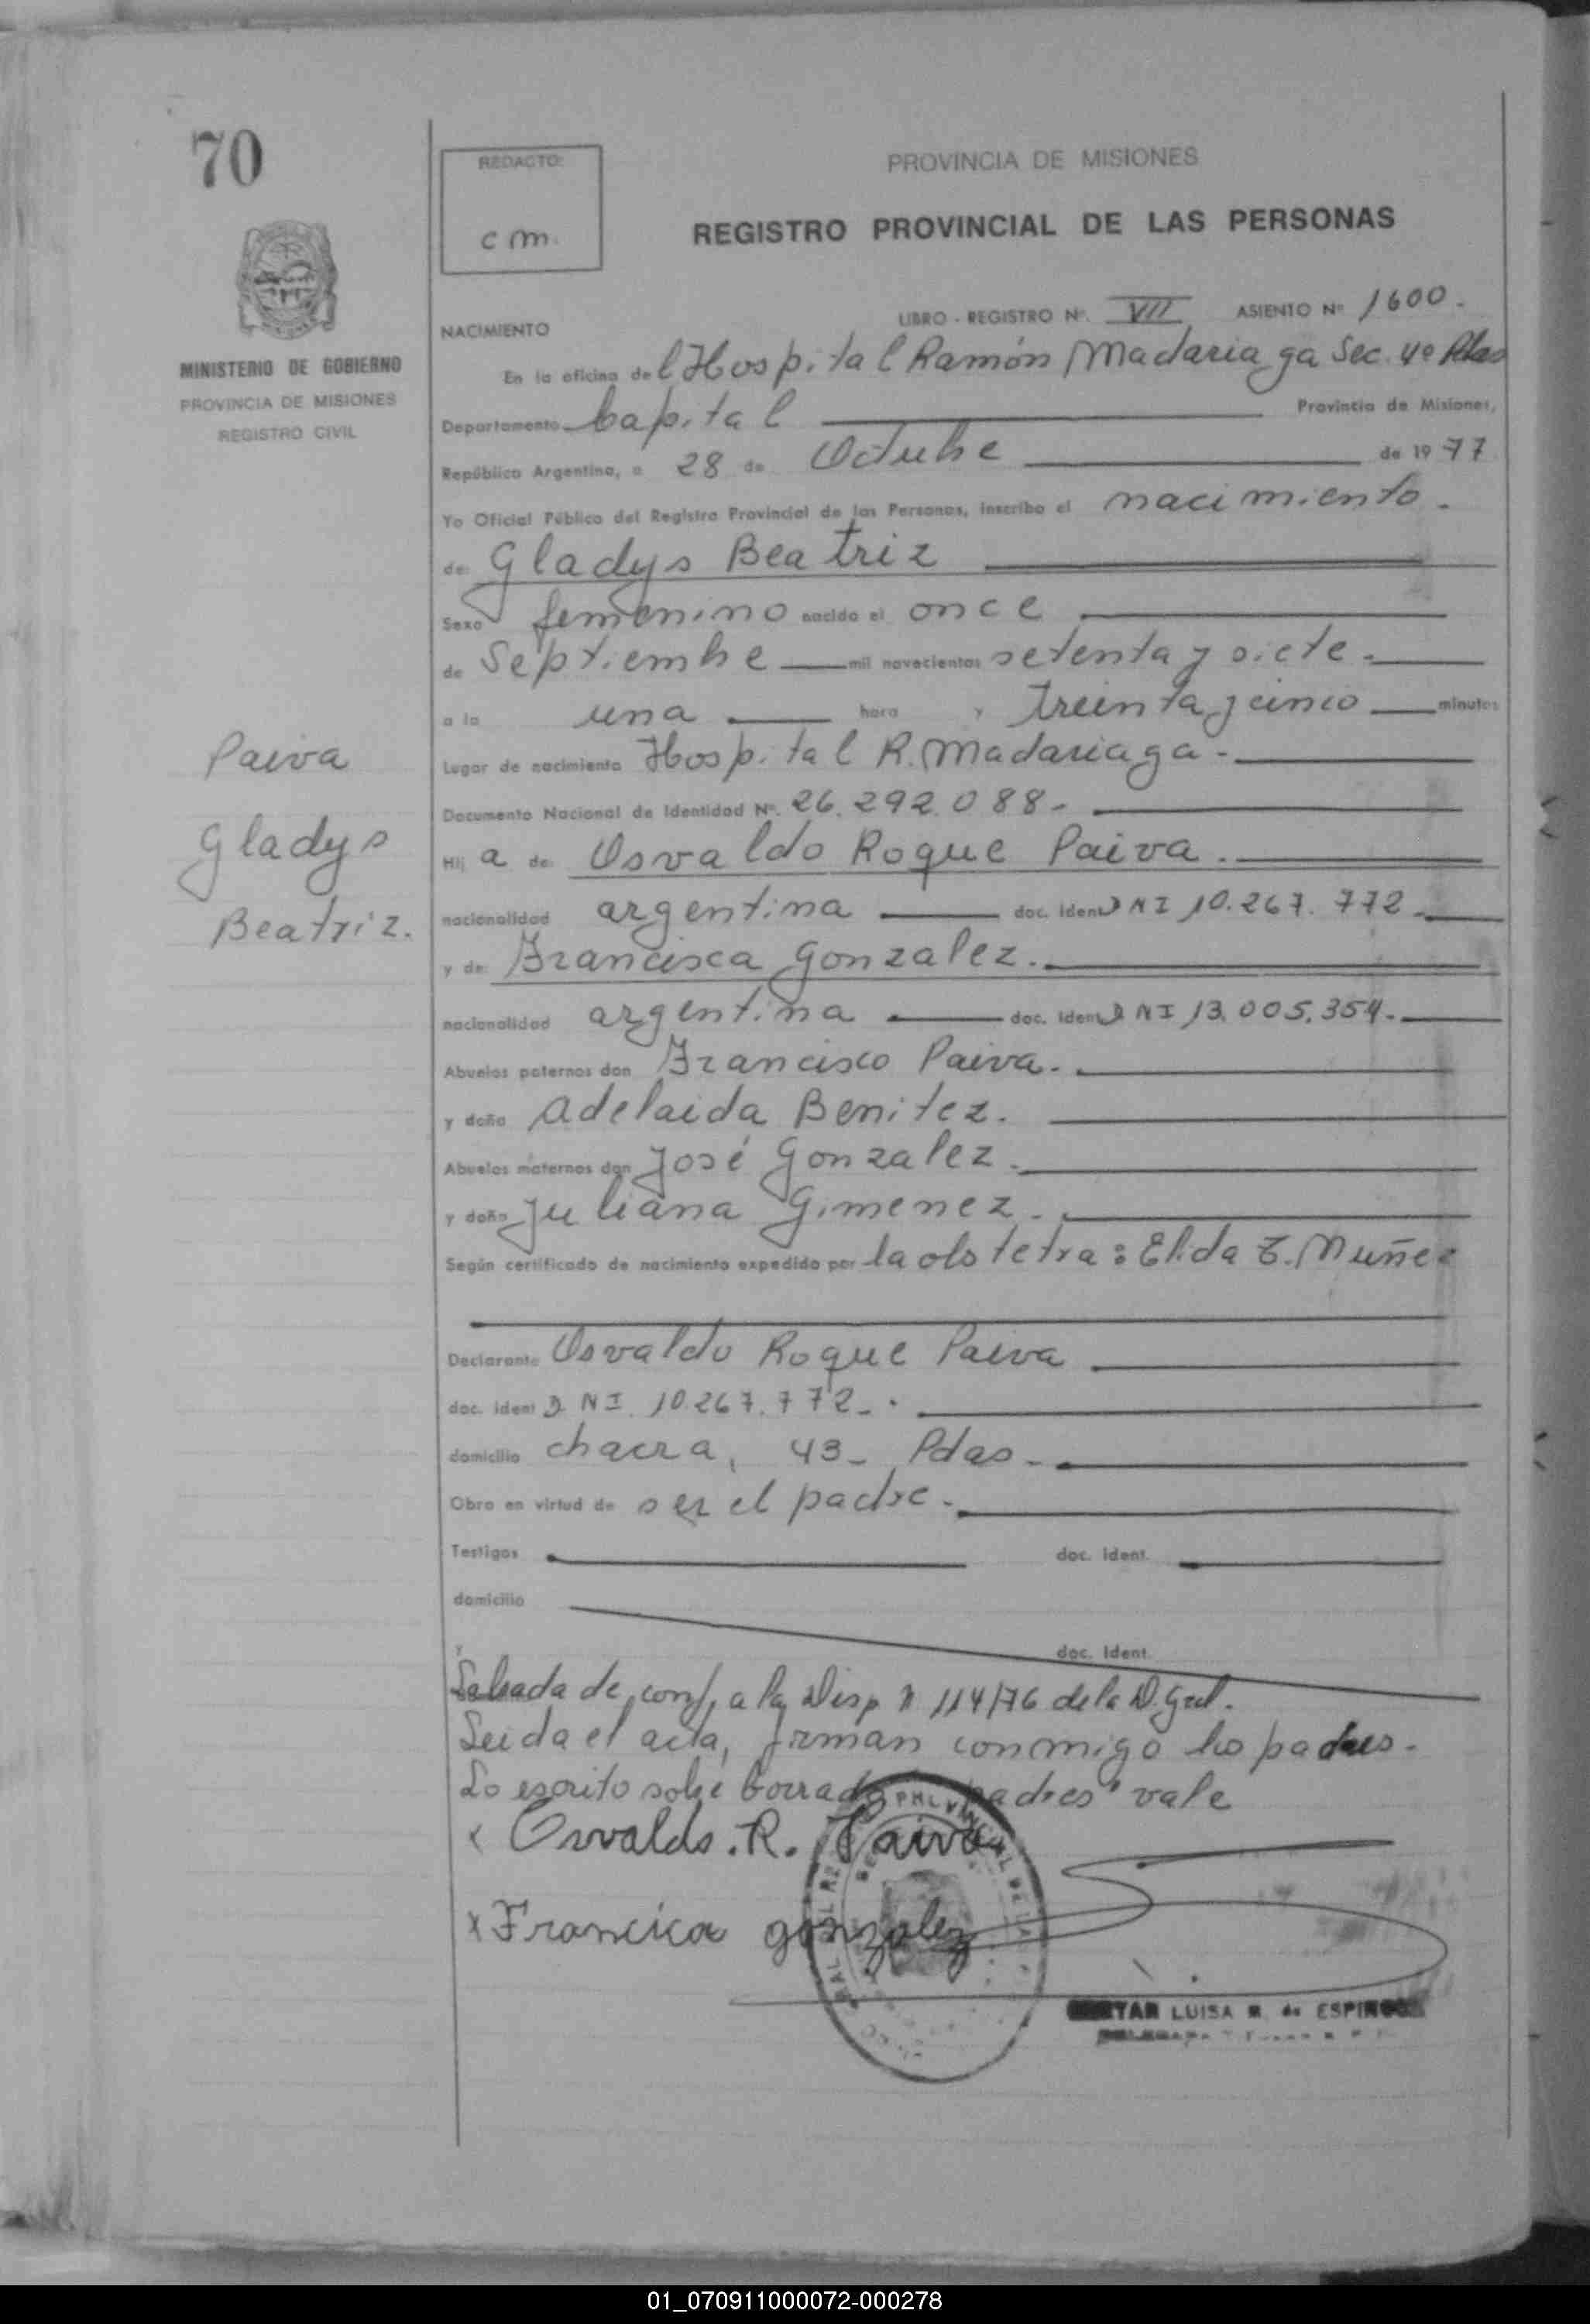 70
REDACTO:
c m.
PROVINCIA DE MISIONES
REGISTRO PROVINCIAL DE LAS PERSONAS
MINISTERIO DE GOBIERNO
PROVINCIA DE MISIONES
REGISTRO CIVIL
LIBRO - REGISTRO Nº. VII ASIENTO Nº 1600.
NACIMIENTO
En la oficina del Hospital Ramón Madariaga Sec. 4º Pdas
Departamento Capital Provincia de Misiones,
República Argentina, a 28 de Octubre de 1977
Yo Oficial Público del Registro Provincial de las Personas, inscribo el nacimiento.
de: Gladys Beatriz
Sexo femenino nacido el once
de Septiembre mil novecientos setenta y siete.
a la una hora y treinta y cinco minutos
Paiva
Gladys
Beatriz.
Lugar de nacimiento Hospital R. Madariaga.
Documento Nacional de Identidad Nº. 26.292.088-
Hija de: Osvaldo Roque Paiva.
nacionalidad argentina doc. ident DNI 10.267.772.
y de: Francisca Gonzalez.
nacionalidad argentina doc. ident DNI 13.005.354.
Abuelos paternos don Francisco Paiva.
y doña Adelaida Benitez.
Abuelos maternos don José Gonzalez.
y doña Juliana Gimenez.
Según certificado de nacimiento expedido por la obstetra: Elida E. Muñez
Declarante Osvaldo Roque Paiva
doc. ident DNI. 10.267.772-.
domicilio chacra, 43- Pdas-
Obra en virtud de ser el padre.
Testigos doc. ident.
domicilio
y doc. ident.
Labrada de conf. a la Disp. n 114/76 de la D. Gral.
Leida el acta, firman conmigo los padres.
Lo escrito sobre borrado "padres" vale
x Osvaldo. R. Paiva
x Francica gonzalez
LUISA M. de ESPINOZA
01_070911000072-000278